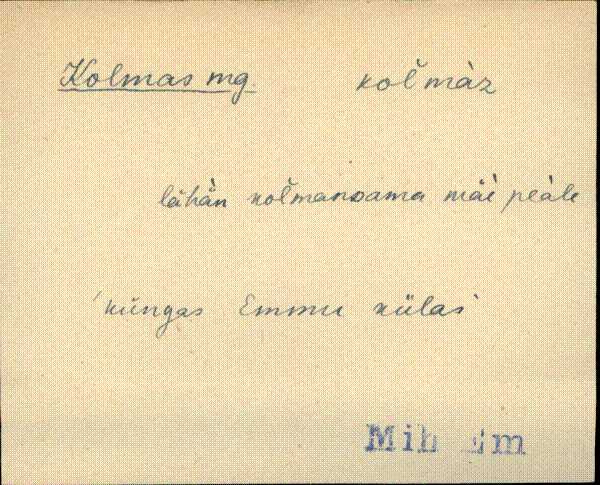 Kolmas mg. kol̆màz
lähä̀n kol̆mandama mäè peàle
'küngas Emmu külas'
Mih Em